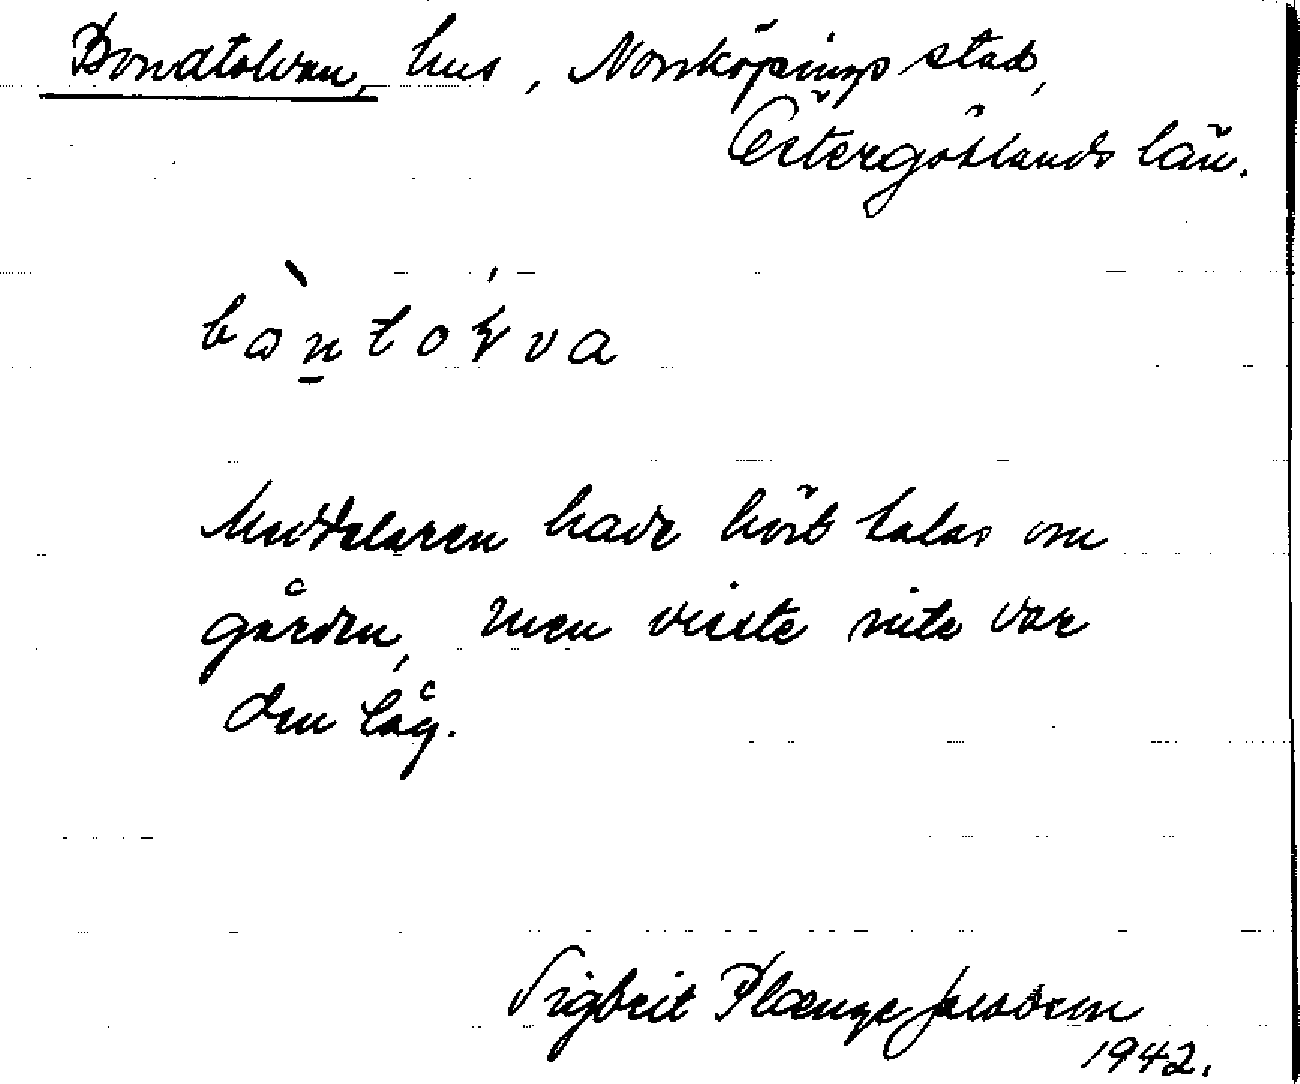 Bondtolvan, hus, Norrköpings stad,
Östergötlands län.
bòntoɽva
Meddelaren hade hört talas om
gården, men visste inte var
den låg.
Sigbrit Plænge Jacobson
1942.